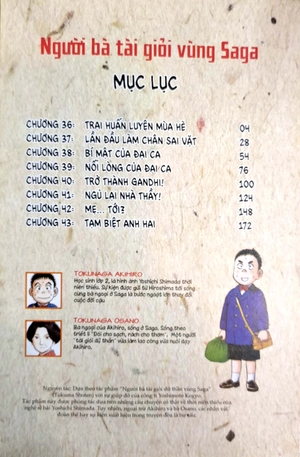 Người bà tài giỏi vùng Saga
MỤC LỤC
CHƯƠNG 36: TRẠI HUẤN LUYỆN MÙA HÈ 04
CHƯƠNG 37: LẦN ĐẦU LÀM CHÂN SAI VẶT 28
CHƯƠNG 38: BÍ MẬT CỦA ĐẠI CA 54
CHƯƠNG 39: NỖI LÒNG CỦA ĐẠI CA 76
CHƯƠNG 40: TRỞ THÀNH GANDHI! 100
CHƯƠNG 41: NGỦ LẠI NHÀ THẦY! 124
CHƯƠNG 42: MẸ... TỚI? 148
CHƯƠNG 43: TẠM BIỆT ANH HAI 172
TOKUNAGA AKIHIRO
Học sinh lớp 2, là hình ảnh Yoshichi Shimada thời
niên thiếu. Sự kiện được gửi từ Hiroshima tới sống
cùng bà ngoại ở Saga là bước ngoặt lớn thay đổi
cuộc đời cậu.
TOKUNAGA OSANO
Bà ngoại của Akihiro, sống ở Saga. Sống theo
triết lí "Đói cho sạch, rách cho thơm". Một người
"tài giỏi dữ thần" vừa làm lao công vừa nuôi dạy
Akihiro.
Nguyên tác: Dựa theo tác phẩm "Người bà tài giỏi dữ thần vùng Saga"
(Tokuma Shoten) với sự giúp đỡ của công ty Yoshimoto Kogyo.
Tác phẩm này được phóng tác dựa trên những câu chuyện có thật về thời niên thiếu của
nghệ sĩ hài Yoshichi Shimada. Tuy nhiên, ngoại trừ Akihiro và bà Osano, các nhân vật,
đoàn thể hay sự kiện xuất hiện trong truyện đều là hư cấu.